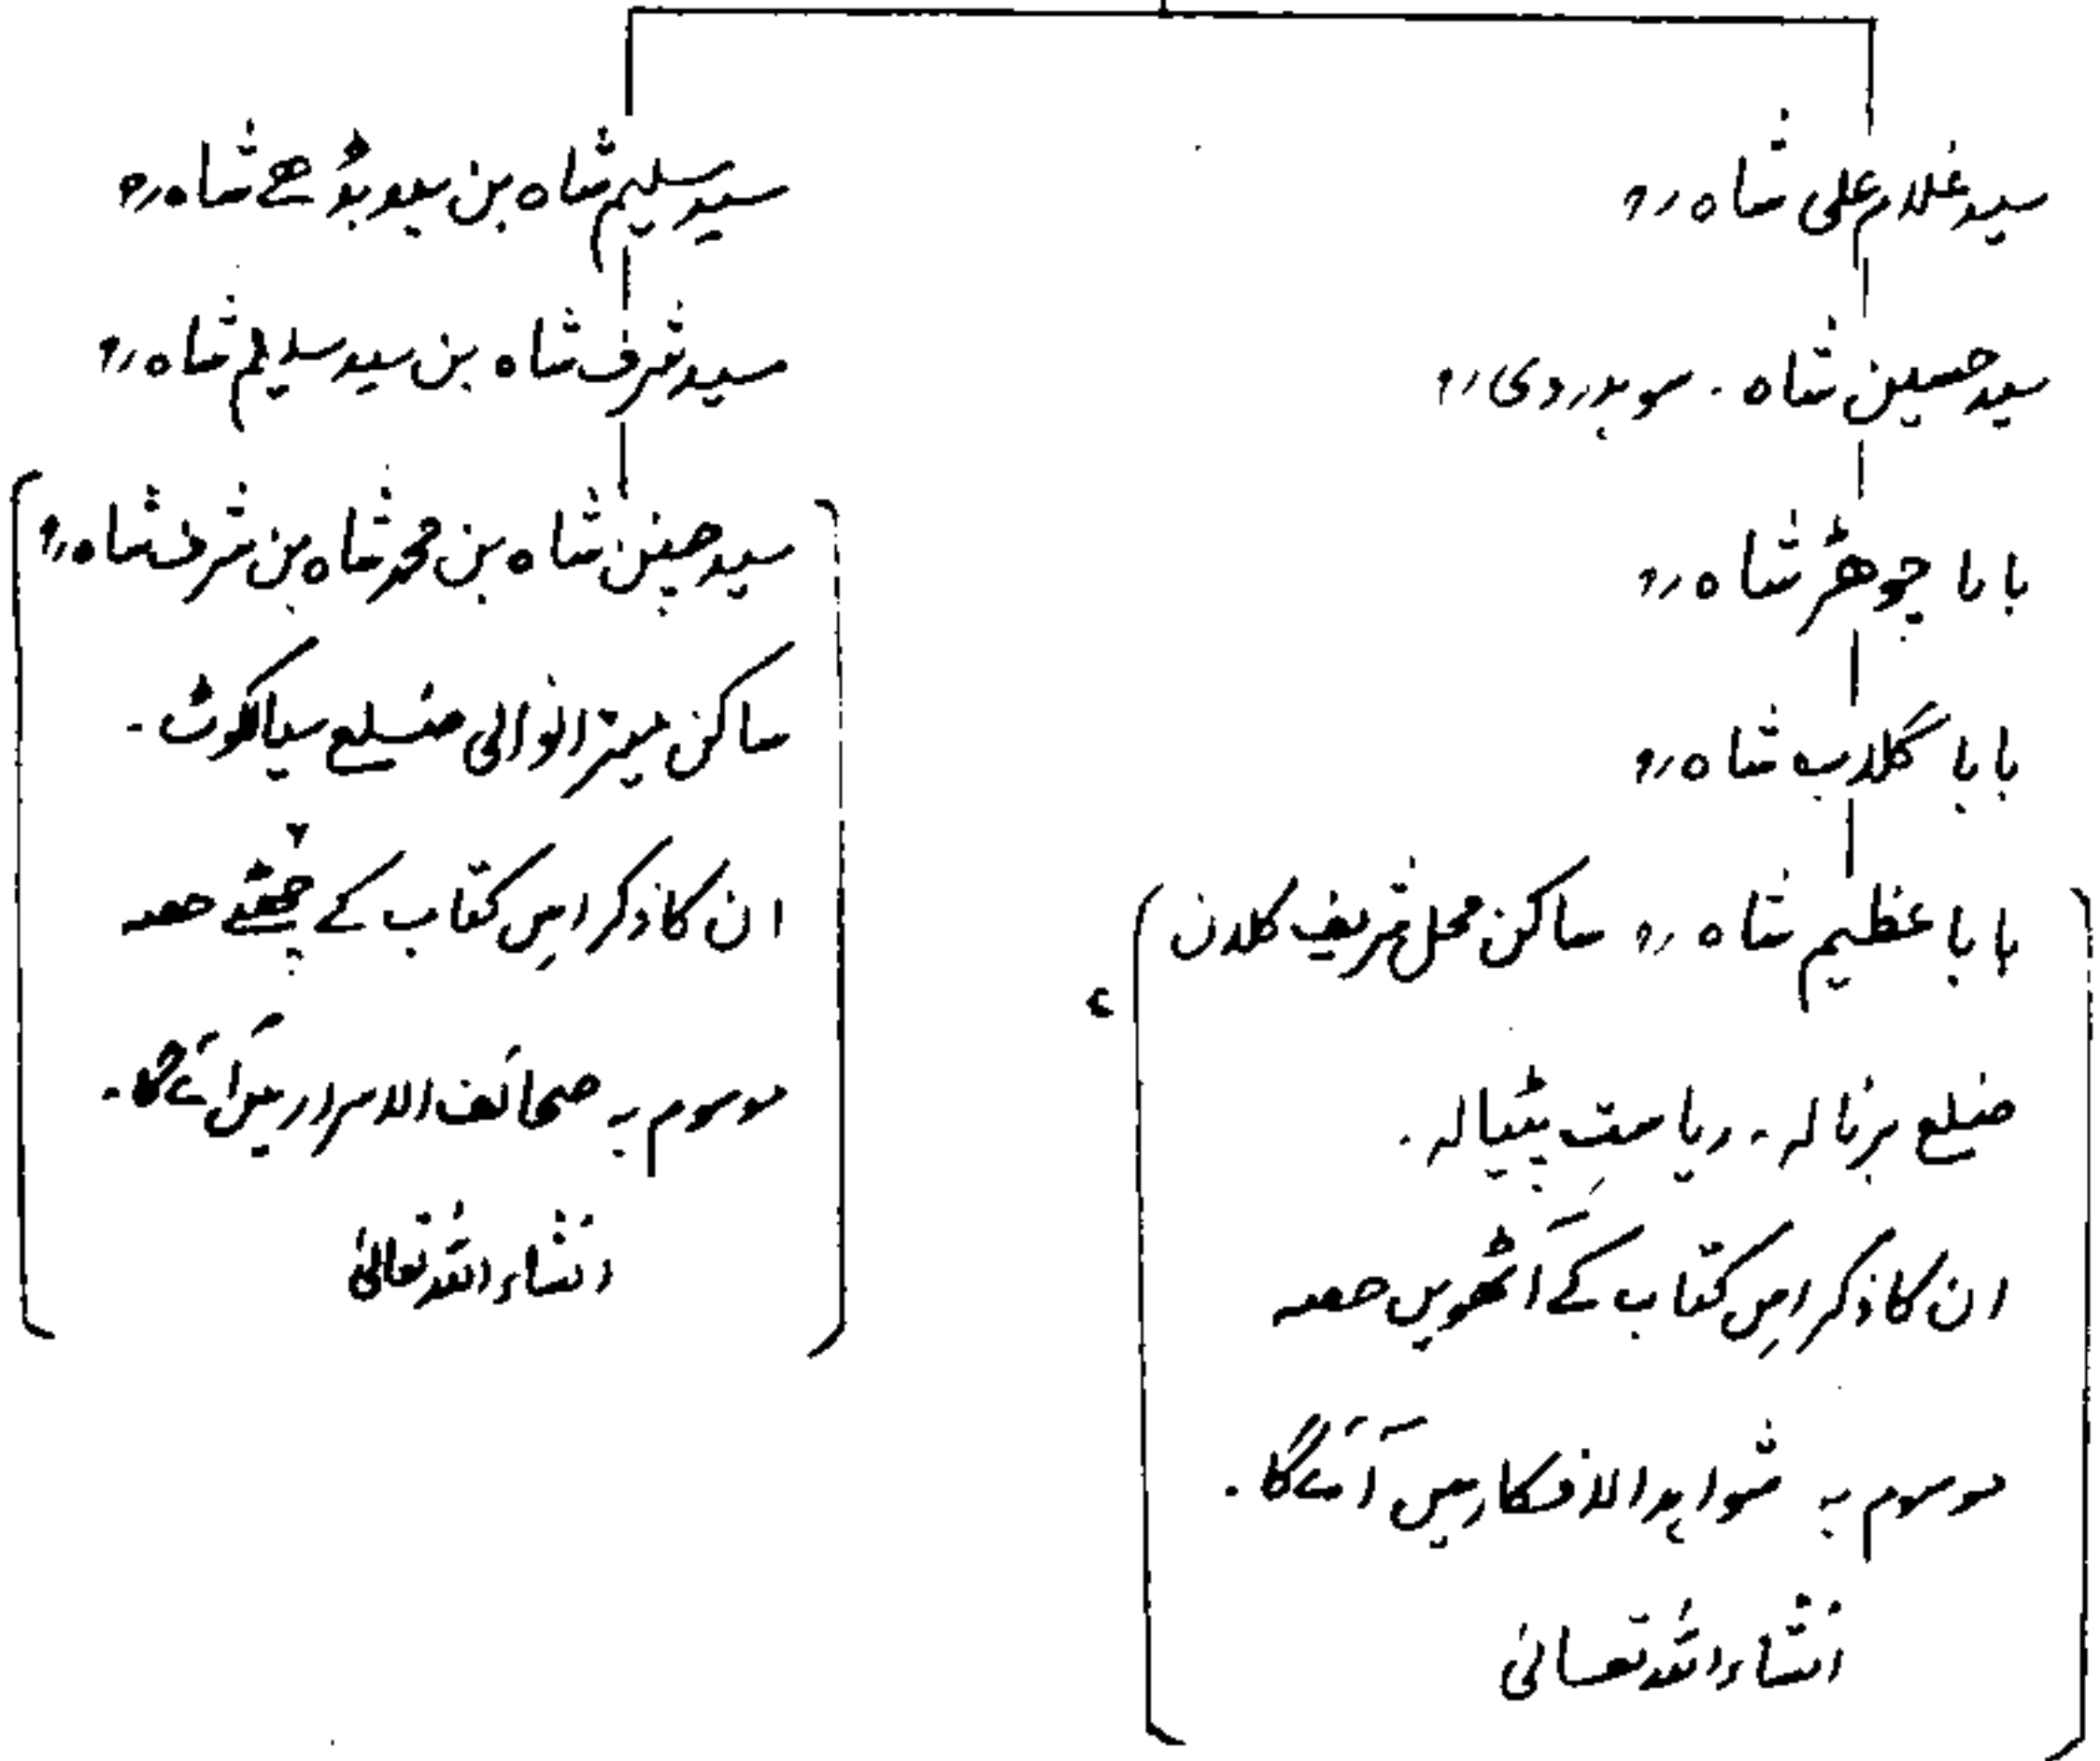 سید غلام علی شاہ رح
سید حسین شاہ ۔ سوہدروی رح
بابا جوھڑ شاہ رح
بابا گلاب شاہ رح
بابا عظیم شاہ رح ساکن محل شریف کلاں
ضلع برنالہ ۔ ریاستِ پٹیالہ ۔
ان کا ذکر اِس کتاب کے آٹھویں حصہ
موسوم بہ شواہد الافکار میں آئے گا ۔
انشاء اللہ تعالیٰ
سید سلیم شاہ بن سید بڈھے شاہ رح
سید شرف شاہ بن سید سلیم شاہ رح
سید شاہ بن محمد شاہ بن شرف شاہ رح
ساکن ضلع سیالکوٹ ۔
ان کا ذکر اِس کتاب کے چھٹے حصہ
موسوم بہ صحائف الاسرار میں آئے گا ۔
انشاء اللہ تعالیٰ